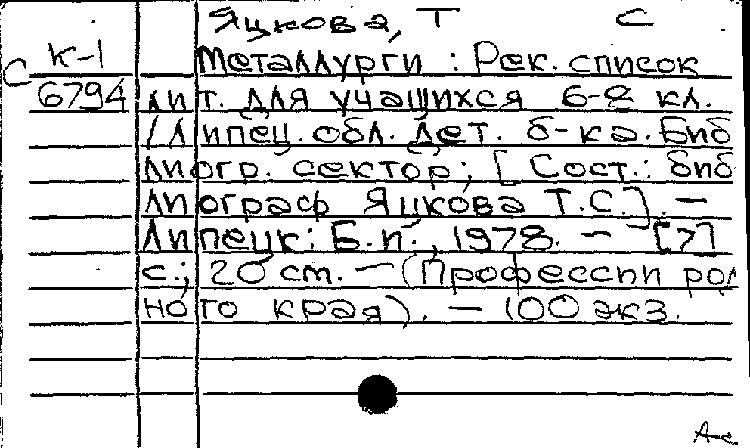 Яцкова, Т С
К-1 Металлурги : Рек. список
С 6794 лит. для учащихся 6-8 кл.
/Липец. обл. дет. б-ка. Биб
лиогр. сектор; [Сост.: биб
лиограф Яцкова Т.С.]. —
Липецк: Б.и., 1978. — [7]
с.; 20 см. — (Профессии род
ного края). — 100 экз.